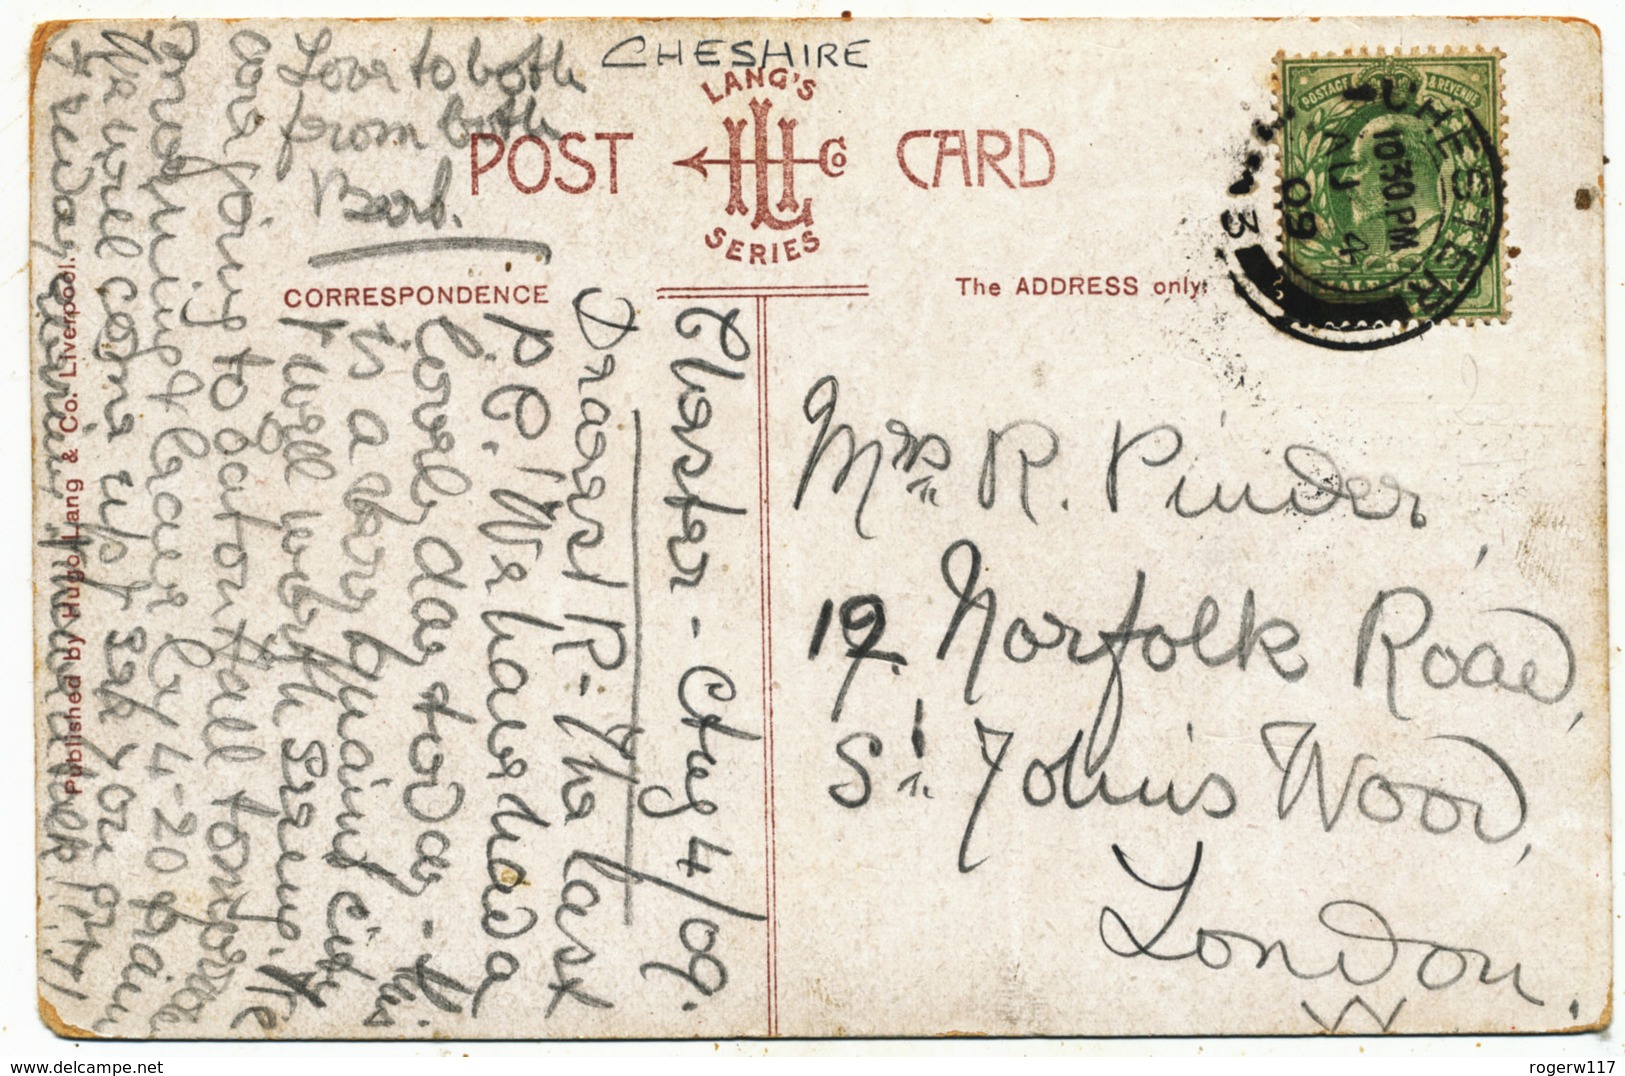 CHESHIRE
LANG'S
POST CARD
Co
SERIES
CORRESPONDENCE
The ADDRESS only.
POSTAGE & REVENUE
CHESTER
10.30 PM
AU 4
09
3
Mrs R. Pinder,
19. Norfolk Road,
St. John's Wood,
London.
W
Chester - Aug 4/09.
Dearest R- The last
P.C.! We have had a
lovely day today - this
is a very quaint city
& well worth seeing. We
are going to Eaton Hall tomorrow
morning & leave by 4-20 train
We will come up & see you
Friday evening
Love to both
from both
Bert.
Published by Hugo Lang & Co. Liverpool.
rogerw117